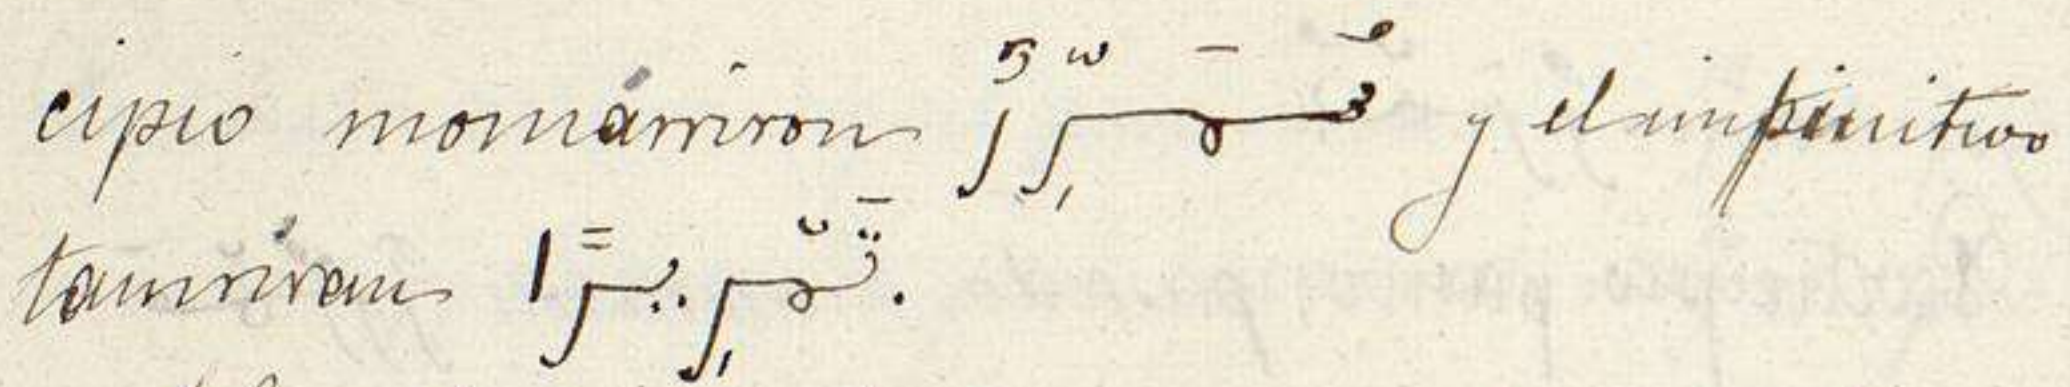 cipio momárriron مُمَرِّرٌ y el infinitivo
tamriran تَمْرِيرًا.